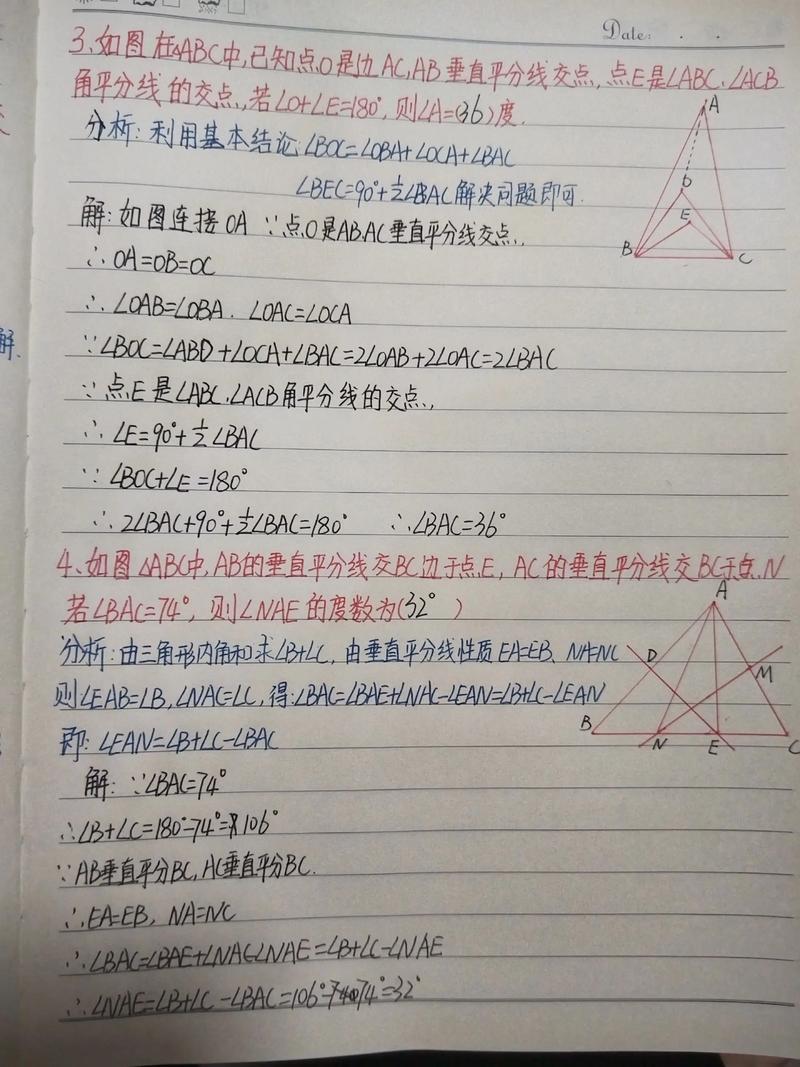 Date: . .
3、如图 在△ABC中,已知点O是边AC,AB垂直平分线交点,点E是∠ABC、∠ACB
角平分线的交点,若∠O+∠E=180°,则∠A=(36)度.
分析:利用基本结论:∠BOC=∠OBA+∠OCA+∠BAC
∠BEC=90°+½∠BAC解决问题即可.
解:如图连接OA ∵点O是AB、AC垂直平分线交点,
∴OA=OB=OC
∴∠OAB=∠OBA. ∠OAC=∠OCA
∵∠BOC=∠ABO+∠OCA+∠BAC=2∠OAB+2∠OAC=2∠BAC
∵点E是∠ABC、∠ACB角平分线的交点,
∴∠E=90°+½∠BAC
∵∠BOC+∠E=180°
∴2∠BAC+90°+½∠BAC=180° ∴∠BAC=36°
A
O
E
B
C
4、如图△ABC中,AB的垂直平分线交BC边于点E,AC的垂直平分线交BC于点N
若∠BAC=74°,则∠NAE的度数为(32°)
分析:由三角形内角和求∠B+∠C,由垂直平分线性质EA=EB、NA=NC
则∠EAB=∠B,∠NAC=∠C,得:∠BAC=∠BAE+∠NAC-∠EAN=∠B+∠C-∠EAN
即:∠EAN=∠B+∠C-∠BAC
解:∵∠BAC=74°
∴∠B+∠C=180°-74°=106°
∵AB垂直平分BC,AC垂直平分BC.
∴EA=EB,NA=NC
∴∠BAC=∠BAE+∠NAC-∠NAE=∠B+∠C-∠NAE
∴∠NAE=∠B+∠C-∠BAC=106°-74°=32°
A
D
M
B
N
E
C
解.